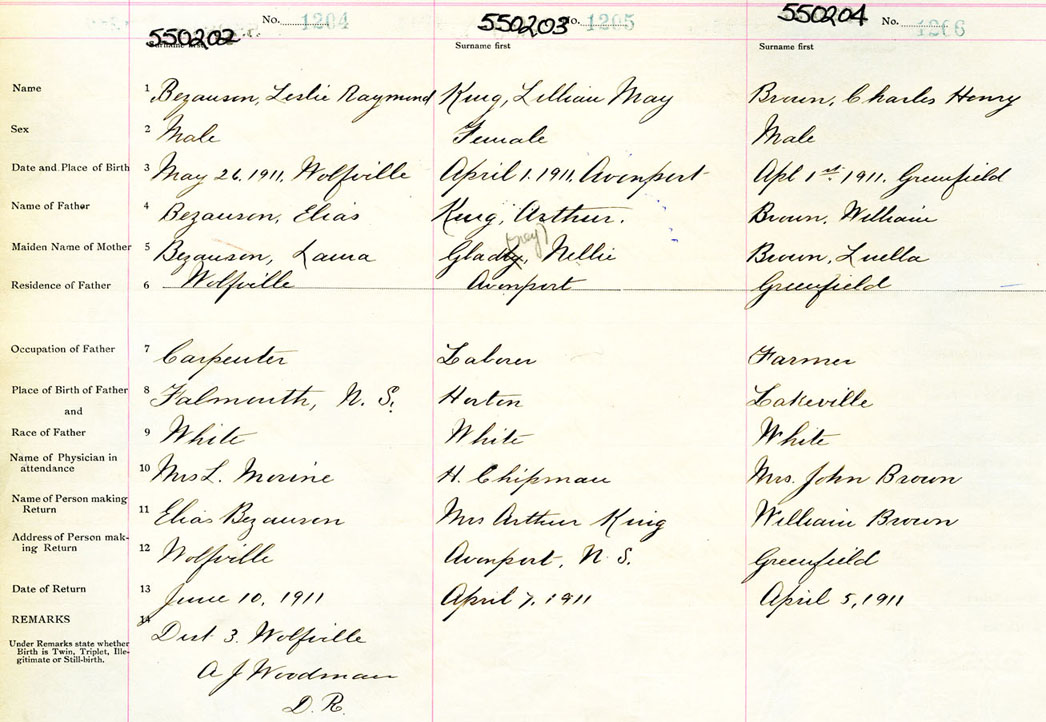 550202 No. 1204 550203 No. 1205 550204 No. 1206
Surname first Surname first Surname first
Name 1 Bezauson, Leslie Raymond King, Lillian May Brown, Charles Henry
Sex 2 Male Female Male
Date and Place of Birth 3 May 26, 1911, Wolfville April 1, 1911, Avonport Apl 1st. 1911. Greenfield
Name of Father 4 Bezauson, Elias King, Arthur. Brown, William
Maiden Name of Mother 5 Bezauson, Laura Nellie Brown, Luella
Residence of Father 6 Wolfville Avonport Greenfield
Occupation of Father 7 Carpenter Laborer Farmer
Place of Birth of Father 8 Falmouth, N. S. Horton Lakeville
and
Race of Father 9 White White White
Name of Physician in
attendance 10 Mrs L. Morine H. Chipman Mrs. John Brown
Name of Person making
Return 11 Elias Bezauson Mrs Arthur King William Brown
Address of Person mak-
ing Return 12 Wolfville Avonport, N. S. Greenfield
Date of Return 13 June 10, 1911 April 7, 1911 April 5, 1911
REMARKS 14 Dist 3. Wolfville
Under Remarks state whether
Birth is Twin, Triplet, Ille-
gitimate or Still-birth.
A J Woodman
D. R.